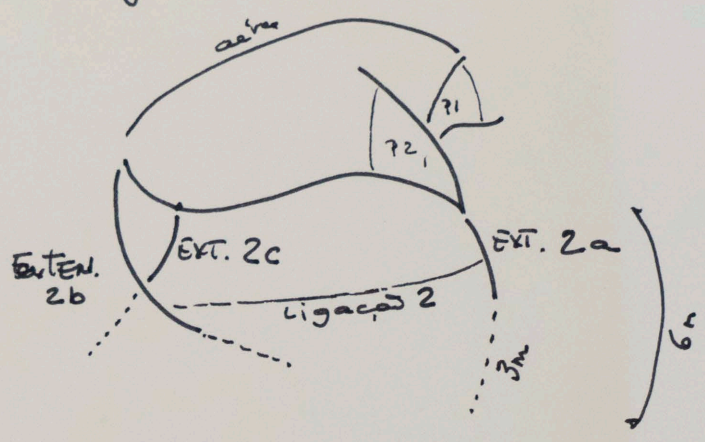 aérea
P1
P2
EXT. 2a
EXT. 2c
EXTEN.
2b
Ligação 2
3m
6m